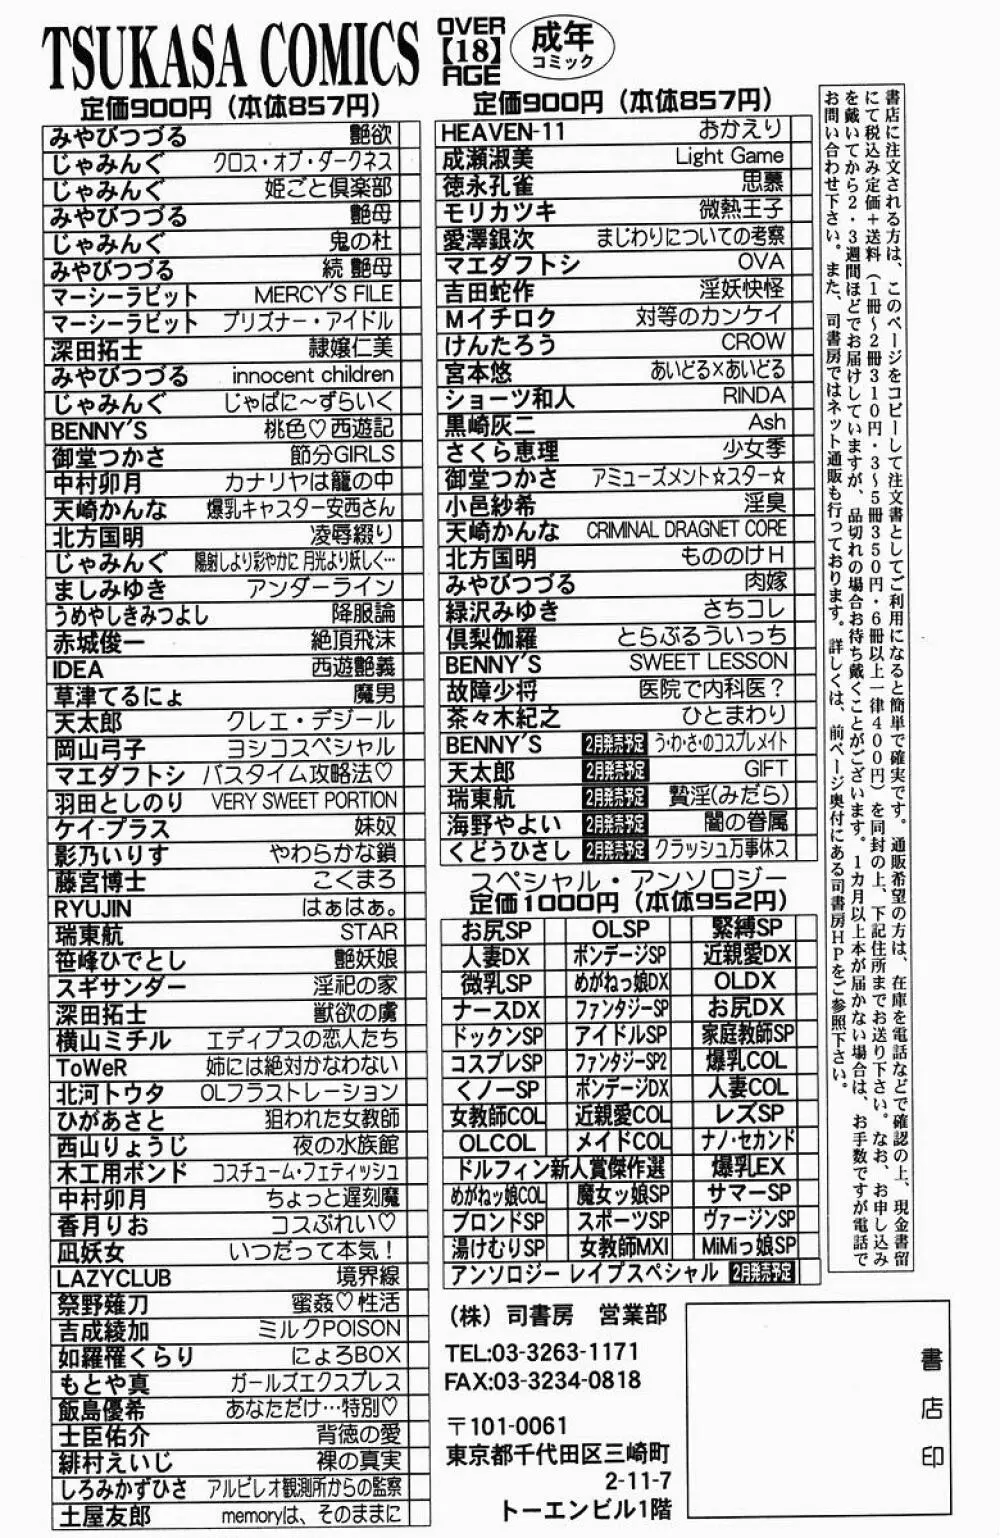 TSUKASA COMICS
OVER
【18】
AGE
成年
コミック
定価900円（本体857円）
みやびつづる 艶欲
じゃみんぐ クロス・オブ・ダークネス
じゃみんぐ 姫ごと倶楽部
みやびつづる 艶母
じゃみんぐ 鬼の杜
みやびつづる 続 艶母
マーシーラビット MERCY'S FILE
マーシーラビット プリズナー・アイドル
深田拓士 隷嬢仁美
みやびつづる innocent children
じゃみんぐ じゃぱに～ずらいく
BENNY'S 桃色♡西遊記
御堂つかさ 節分GIRLS
中村卯月 カナリヤは籠の中
天崎かんな 爆乳キャスター安西さん
北方国明 凌辱綴り
じゃみんぐ 陽射しより彩やかに 月光より妖しく…
ましみゆき アンダーライン
うめやしきみつよし 降服論
赤城俊一 絶頂飛沫
IDEA 西遊艶義
草津てるにょ 魔男
天太郎 クレエ・デジール
岡山弓子 ヨシコスペシャル
マエダフトシ バスタイム攻略法♡
羽田としのり VERY SWEET PORTION
ケイ-プラス 妹奴
影乃いりす やわらかな鎖
藤宮博士 こくまろ
RYUJIN はぁはぁ。
瑞東航 STAR
笹峰ひでとし 艶妖娘
スギサンダー 淫祀の家
深田拓士 獣欲の虜
横山ミチル エディプスの恋人たち
ToWeR 姉には絶対かなわない
北河トウタ OLフラストレーション
ひがあさと 狙われた女教師
西山りょうじ 夜の水族館
木工用ボンド コスチューム・フェティッシュ
中村卯月 ちょっと遅刻魔
香月りお コスぷれい♡
凪妖女 いつだって本気！
LAZYCLUB 境界線
祭野薙刀 蜜姦♡性活
吉成綾加 ミルクPOISON
如羅罹くらり にょろBOX
もとや真 ガールズエクスプレス
飯島優希 あなただけ…特別♡
士臣佑介 背徳の愛
緋村えいじ 裸の真実
しろみかずひさ アルビレオ観測所からの監察
土屋友郎 memoryは、そのままに
定価900円（本体857円）
HEAVEN-11 おかえり
成瀬淑美 Light Game
徳永孔雀 思慕
モリカツキ 微熱王子
愛澤銀次 まじわりについての考察
マエダフトシ OVA
吉田蛇作 淫妖快怪
Mイチロク 対等のカンケイ
けんたろう CROW
宮本悠 あいどる×あいどる
ショーツ和人 RINDA
黒崎灰二 Ash
さくら恵理 少女季
御堂つかさ アミューズメント☆スター☆
小邑紗希 淫臭
天崎かんな CRIMINAL DRAGNET CORE
北方国明 もののけH
みやびつづる 肉嫁
緑沢みゆき さちコレ
倶梨伽羅 とらぶるういっち
BENNY'S SWEET LESSON
故障少将 医院で内科医？
茶々木紀之 ひとまわり
BENNY'S 2月発売予定 う・わ・さ・のコスプレメイト
天太郎 2月発売予定 GIFT
瑞東航 2月発売予定 贄淫(みだら)
海野やよい 2月発売予定 闇の眷属
くどうひさし 2月発売予定 クラッシュ万事休ス
スペシャル・アンソロジー
定価1000円（本体952円）
お尻SP OLSP 緊縛SP
人妻DX ボンデージSP 近親愛DX
微乳SP めがねっ娘DX OLDX
ナースDX ファンタジーSP お尻DX
ドックンSP アイドルSP 家庭教師SP
コスプレSP ファンタジーSP2 爆乳COL
くノーSP ボンデージDX 人妻COL
女教師COL 近親愛COL レズSP
OLCOL メイドCOL ナノ・セカンド
ドルフィン新人賞傑作選 爆乳EX
めがねッ娘COL 魔女ッ娘SP サマーSP
ブロンドSP スポーツSP ヴァージンSP
湯けむりSP 女教師MXI MiMiっ娘SP
アンソロジー レイプスペシャル 2月発売予定
（株）司書房 営業部
TEL:03-3263-1171
FAX:03-3234-0818
〒101-0061
東京都千代田区三崎町
2-11-7
トーエンビル1階
書店印
書店に注文される方は、このページをコピーして注文書としてご利用になると簡単で確実です。通販希望の方は、在庫を電話などで確認の上、現金書留
にて税込み定価＋送料（1冊～2冊310円・3～5冊350円・6冊以上一律400円）を同封の上、下記住所までお送り下さい。なお、お申し込み
を戴いてから2・3週間ほどでお届けしていますが、品切れの場合お待ち戴くことがございます。1カ月以上本が届かない場合は、お手数ですが電話で
お問い合わせ下さい。また、司書房ではネット通販も行っております。詳しくは、前ページ奥付にある司書房HPをご参照下さい。